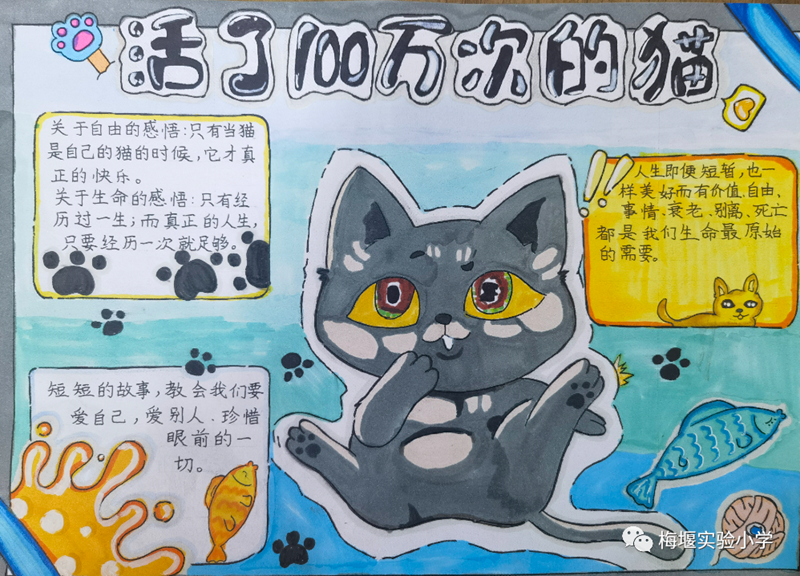 活了100万次的猫
关于自由的感悟:只有当猫
是自己的猫的时候,它才真
正的快乐。
关于生命的感悟:只有经
历过一生;而真正的人生,
只要经历一次就足够。
!!
人生即便短暂,也一
样美好而有价值、自由、
事情、衰老、别离、死亡
都是我们生命最原始
的需要。
短短的故事,教会我们要
爱自己,爱别人、珍惜
眼前的一
切。
梅堰实验小学